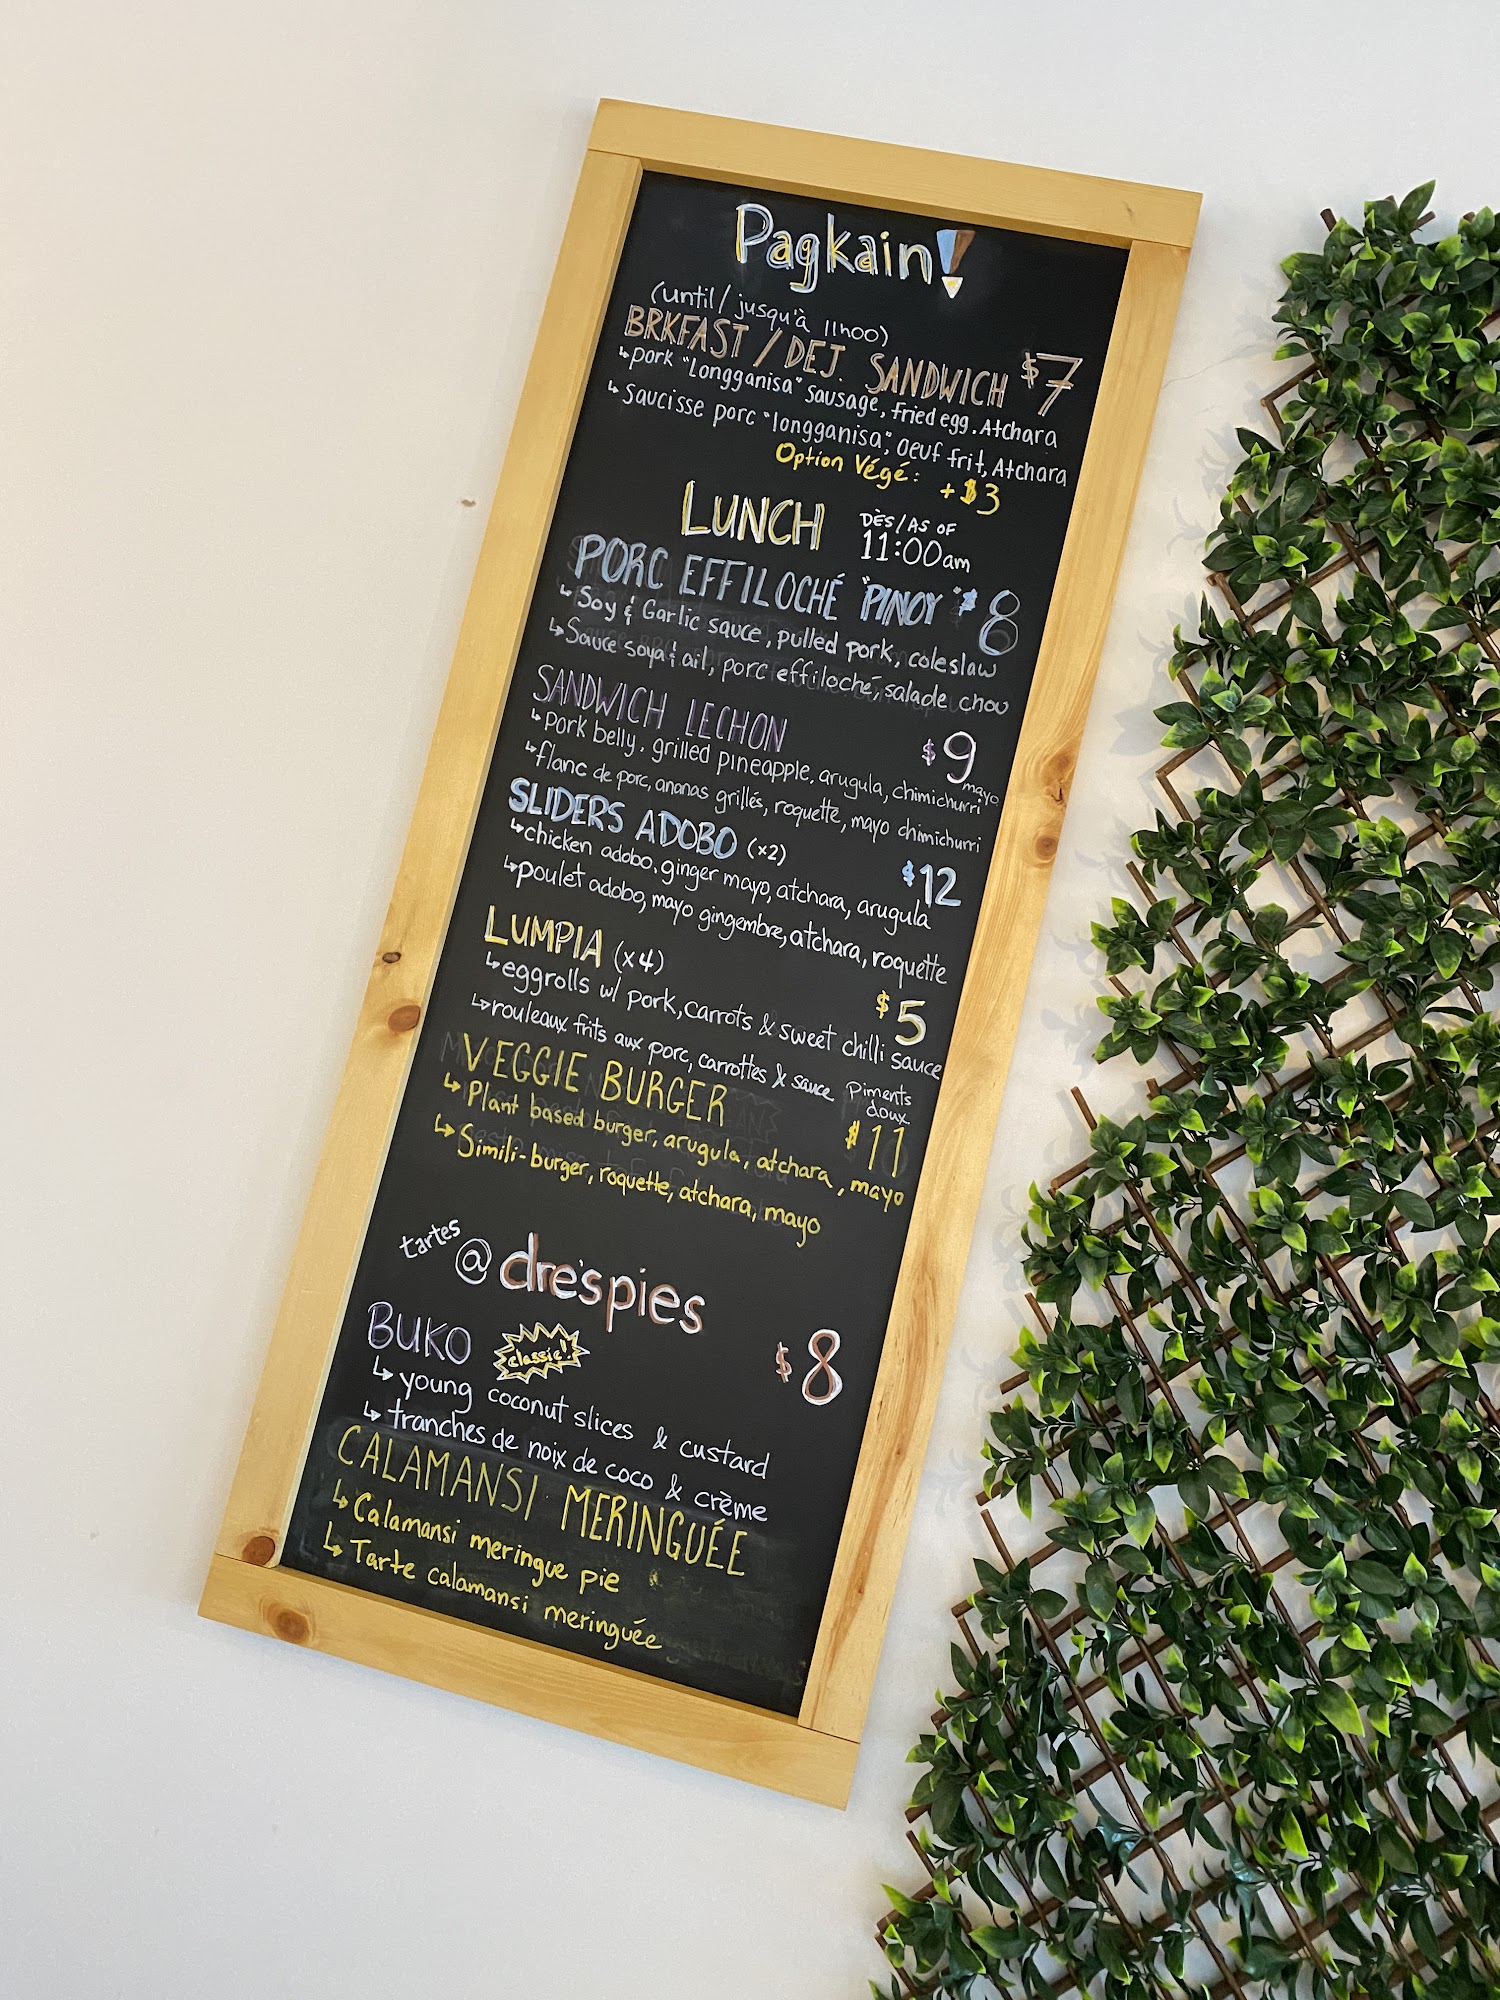 Pagkain!
(until / jusqu'à 11h00)
BRKFAST / DEJ. SANDWICH $7
↳ pork "Longganisa" sausage, fried egg. Atchara
↳ saucisse porc "longganisa", oeuf frit, Atchara
Option Végé: +$3
LUNCH DÈS/AS OF
11:00am
PORC EFFILOCHÉ "PINOY" $8
↳ Soy & Garlic sauce, pulled pork, coleslaw
↳ Sauce soya & ail, porc effiloché, salade chou
SANDWICH LECHON $9
↳ pork belly, grilled pineapple, arugula, chimichurri mayo
↳ flanc de porc, ananas grillés, roquette, mayo chimichurri
SLIDERS ADOBO (x2) $12
↳ chicken adobo, ginger mayo, atchara, arugula
↳ poulet adobo, mayo gingembre, atchara, roquette
LUMPIA (x4) $5
↳ eggrolls w/ pork, carrots & sweet chilli sauce
↳ rouleaux frits aux porc, carrottes & sauce Piments doux
VEGGIE BURGER $11
↳ Plant based burger, arugula, atchara, mayo
↳ Simili-burger, roquette, atchara, mayo
tartes @dre'spies
BUKO classic! $8
↳ young coconut slices & custard
↳ tranches de noix de coco & crème
CALAMANSI MERINGUÉE
↳ Calamansi meringue pie
↳ Tarte calamansi meringuée